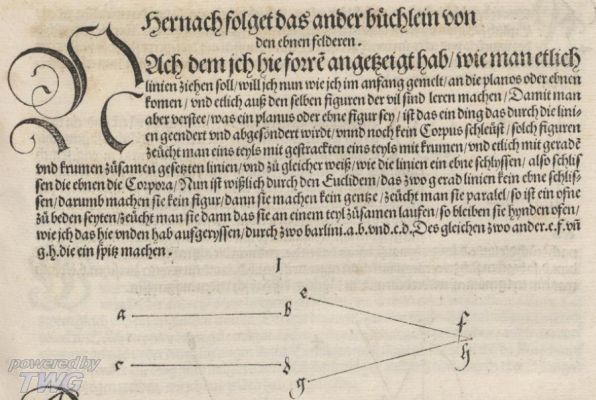 Hernach folget das ander büchlein von
den ebnen felderen.
NAch dem jch hie forrē angetzeigt hab/ wie man etlich
linien ziehen soll/ will jch nun wie jch im anfang gemelt/ an die planos oder ebnen
komen/ vnd etlich auß den selben figuren der vil sind leren machen/ Damit man
aber verstee/ was ein planus oder ebne figur sey/ ist das ein ding das durch die lini-
en geendert vnd abgesöndert wirdt/ vnnd noch kein Corpus schleüst/ solch figuren
zeücht man eins teyls mit gestrackten eins teyls mit krumen/ vnd etlich mit geradē
vnd krumen zůsamen gesetzten linien/ vnd zů gleicher weiß/ wie die linien ein ebne schlyssen/ also schlis
sen die ebnen die Corpora/ Nun ist wißlich durch den Euclidem/ das zwo gerad linien kein ebne schlis-
sen/ darumb machen sie kein figur/ dann sie machen kein gentze/ zeücht man sie paralel/ so ist ein ofne
zů beden seyten/ zeücht man sie dann das sie an einem teyl zůsamen laufen/ so bleiben sie hynden ofen/
wie jch das hie vnden hab aufgeryssen/ durch zwo barlini.a.b.vnd.c.d. Des gleichen zwo ander.e.f.vñ
g.h.die ein spitz machen.
1
a b e f
c d g h
powered by
TWG